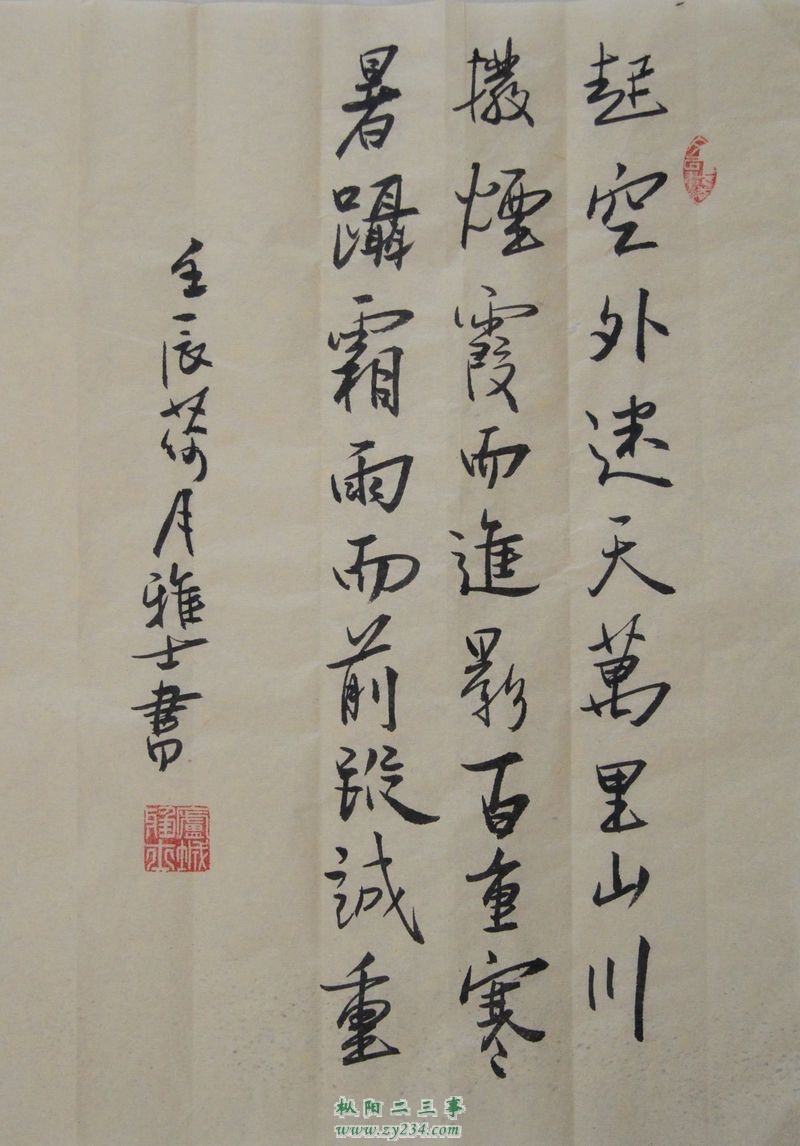 起空外迷天萬里山川
撥煙霞而進影百重寒
暑躡霜雨而前蹤誠重
壬辰荷月雅士書
枞阳二三事
www.zy234.com